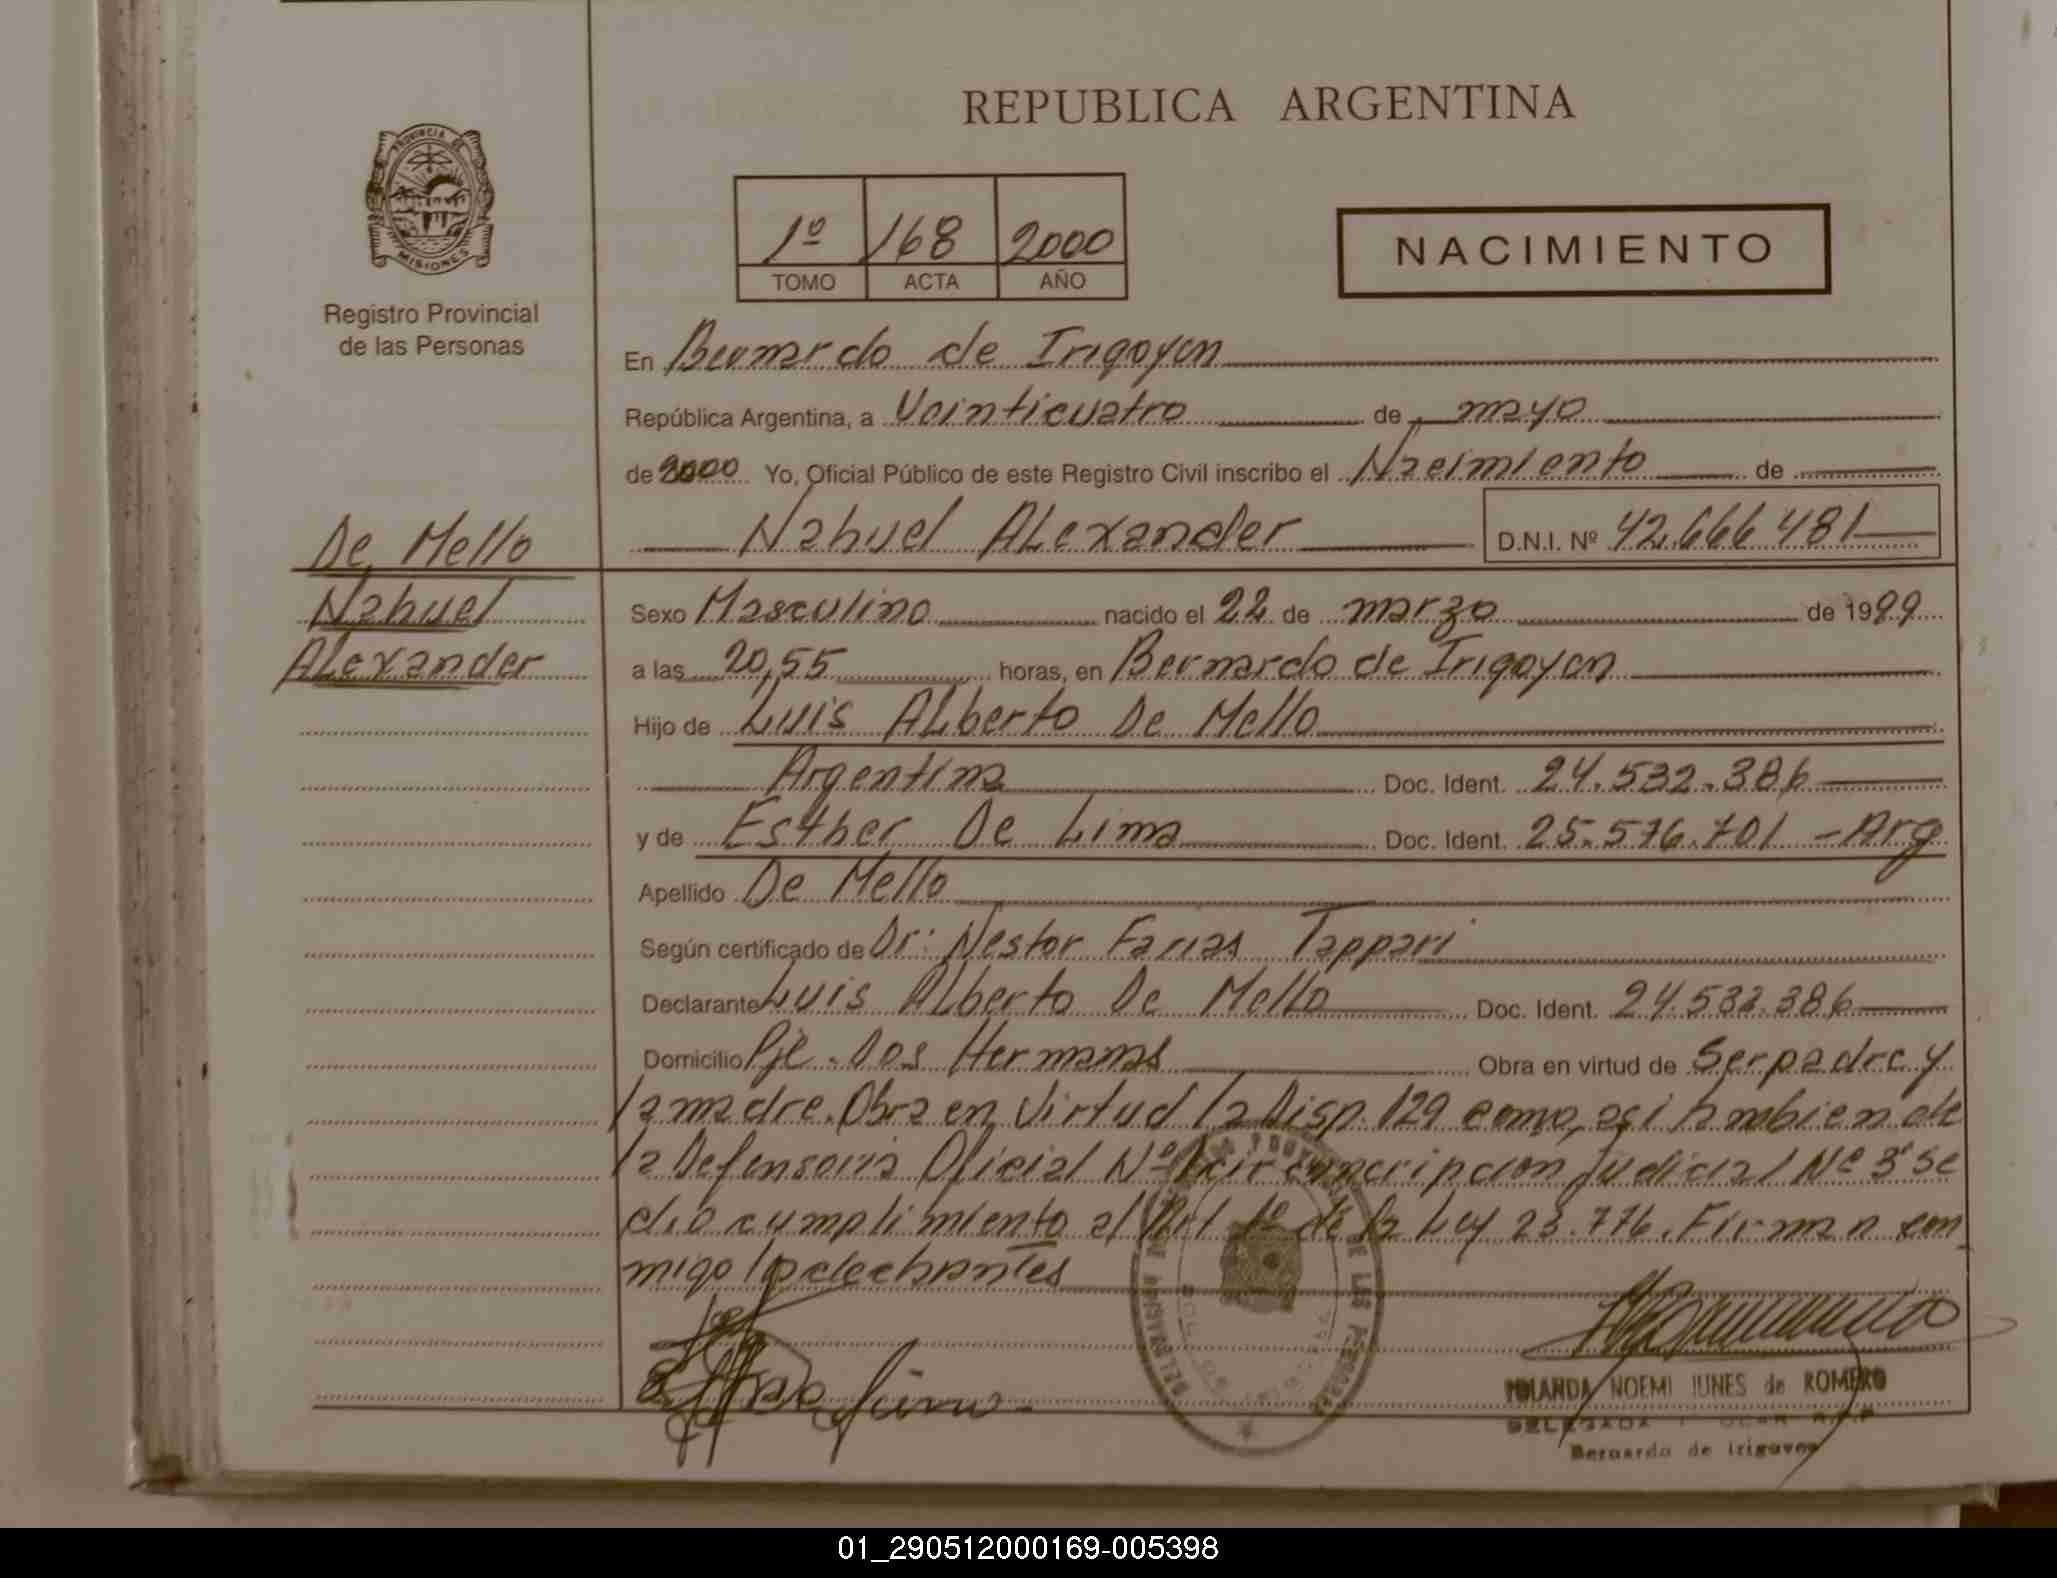 REPUBLICA ARGENTINA
PROVINCIA DE
MISIONES
Registro Provincial
de las Personas
1º 168 2000
TOMO ACTA AÑO
NACIMIENTO
En Bernardo de Irigoyen
República Argentina, a Veinticuatro de mayo
de 2000 Yo, Oficial Público de este Registro Civil inscribo el Nacimiento de
Nahuel Alexander D.N.I. Nº 42.666 481
De Mello
Nahuel
Alexander
Sexo Masculino nacido el 22 de marzo de 1999
a las 20,55 horas, en Bernardo de Irigoyen
Hijo de Luis Alberto De Mello
Argentina Doc. Ident. 24.532.386
y de Esther De Lima Doc. Ident. 25.576.701 - Arg
Apellido De Mello
Según certificado de Dr: Nestor Farias Tappari
Declarante Luis Alberto De Mello Doc. Ident. 24.532.386
Domicilio Pje. Dos Hermanas Obra en virtud de Ser padre y
la madre. Obra en Virtud la Disp. 129 como asi tambien de
la Defensoria Oficial Nº 1 circunscripcion judicial Nº 3 se
dio cumplimiento al Art 1º de la Ley 23.776. Firman con
migo los declarantes
YOLANDA NOEMI IUNES de ROMERO
DELEGADA R.P.P
Bernardo de Irigoyen
01_290512000169-005398